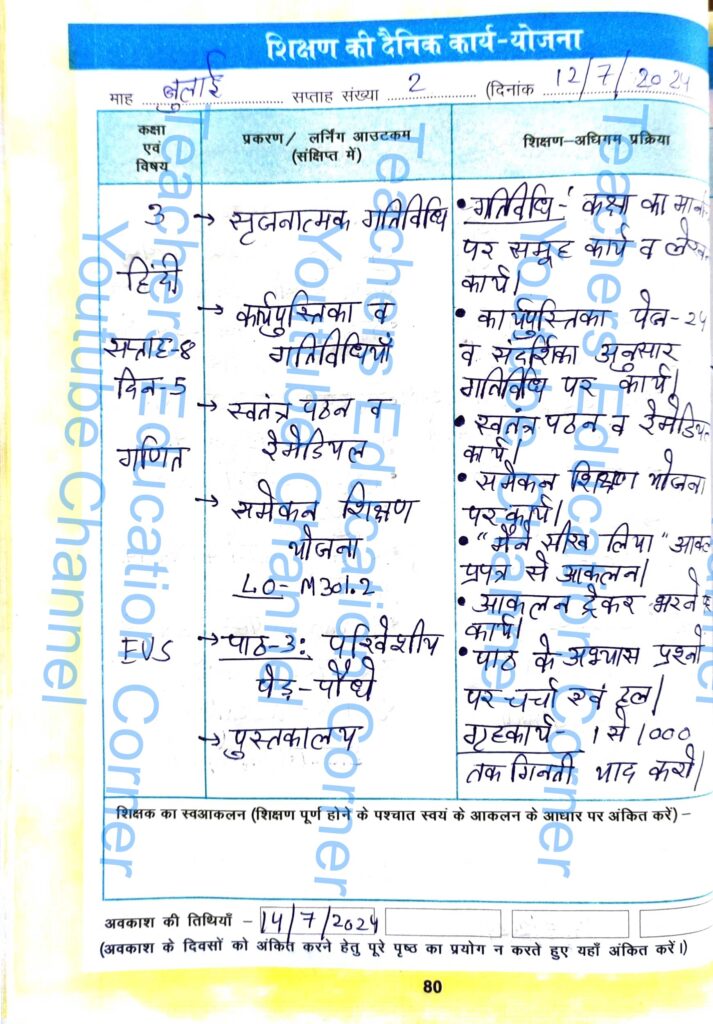 शिक्षण की दैनिक कार्य-योजना
माह जुलाई सप्ताह संख्या 2 (दिनांक 12/7/2024
कक्षा
एवं
विषय
प्रकरण/ लर्निंग आउटकम
(संक्षिप्त में)
शिक्षण-अधिगम प्रक्रिया
3
हिंदी
सप्ताह-8
दिन-5
गणित
EVS
→ सृजनात्मक गतिविधि
→ कार्यपुस्तिका व
गतिविधियाँ
→ स्वतंत्र पठन व
रेमेडियल
→ समेकन शिक्षण
योजना
LO- M301.2
→ पाठ-3: परिवेशीय
पेड़-पौधे
→ पुस्तकालय
• गतिविधि-' कक्षा का
पर समूह कार्य व
कार्य।
• कार्यपुस्तिका पेज-24
व संदर्शिका अनुसार
गतिविधि पर कार्य।
• स्वतंत्र पठन व
कार्य।
• समेकन शिक्षण योजना
पर कार्य।
• "मैंने सीख लिया"
प्रपत्र से आकलन।
• आकलन ट्रेकर भरने
कार्य।
• पाठ के अभ्यास प्रश्नों
पर चर्चा एवं हल।
गृहकार्य- 1 से 1000
तक गिनती याद करो।
शिक्षक का स्वआकलन (शिक्षण पूर्ण होने के पश्चात स्वयं के आकलन के आधार पर अंकित करें) –
अवकाश की तिथियाँ - 14/7/2024
(अवकाश के दिवसों को अंकित करने हेतु पूरे पृष्ठ का प्रयोग न करते हुए यहाँ अंकित करें।)
80
Teachers Education Corner
Youtube Channel
Teachers Education Corner
Youtube Channel
Teachers Education Corner
Youtube Channel